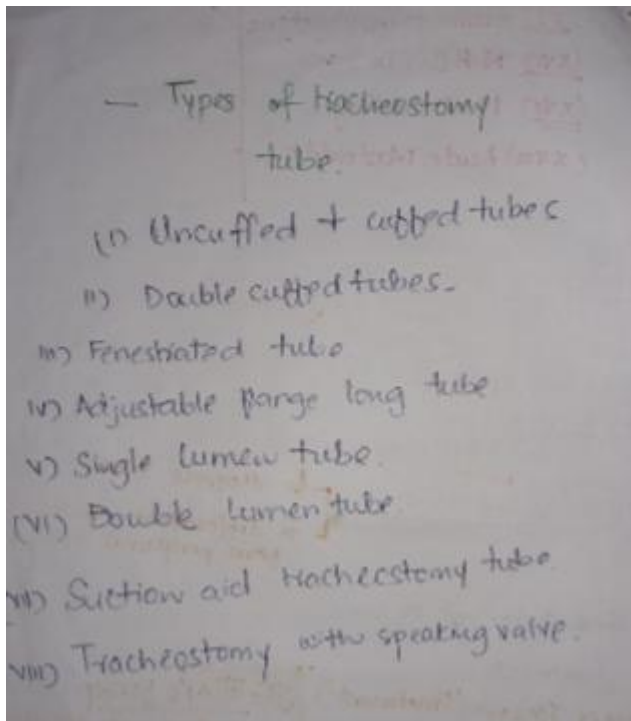 — Types of tracheostomy
tube.
(i) Uncuffed + cuffed tubes
ii) Double cuffed tubes.
iii) Fenestrated tube
iv) Adjustable flange long tube
v) Single lumen tube.
(vi) Double lumen tube
vii) Suction aid tracheostomy tube
viii) Tracheostomy with speaking valve.